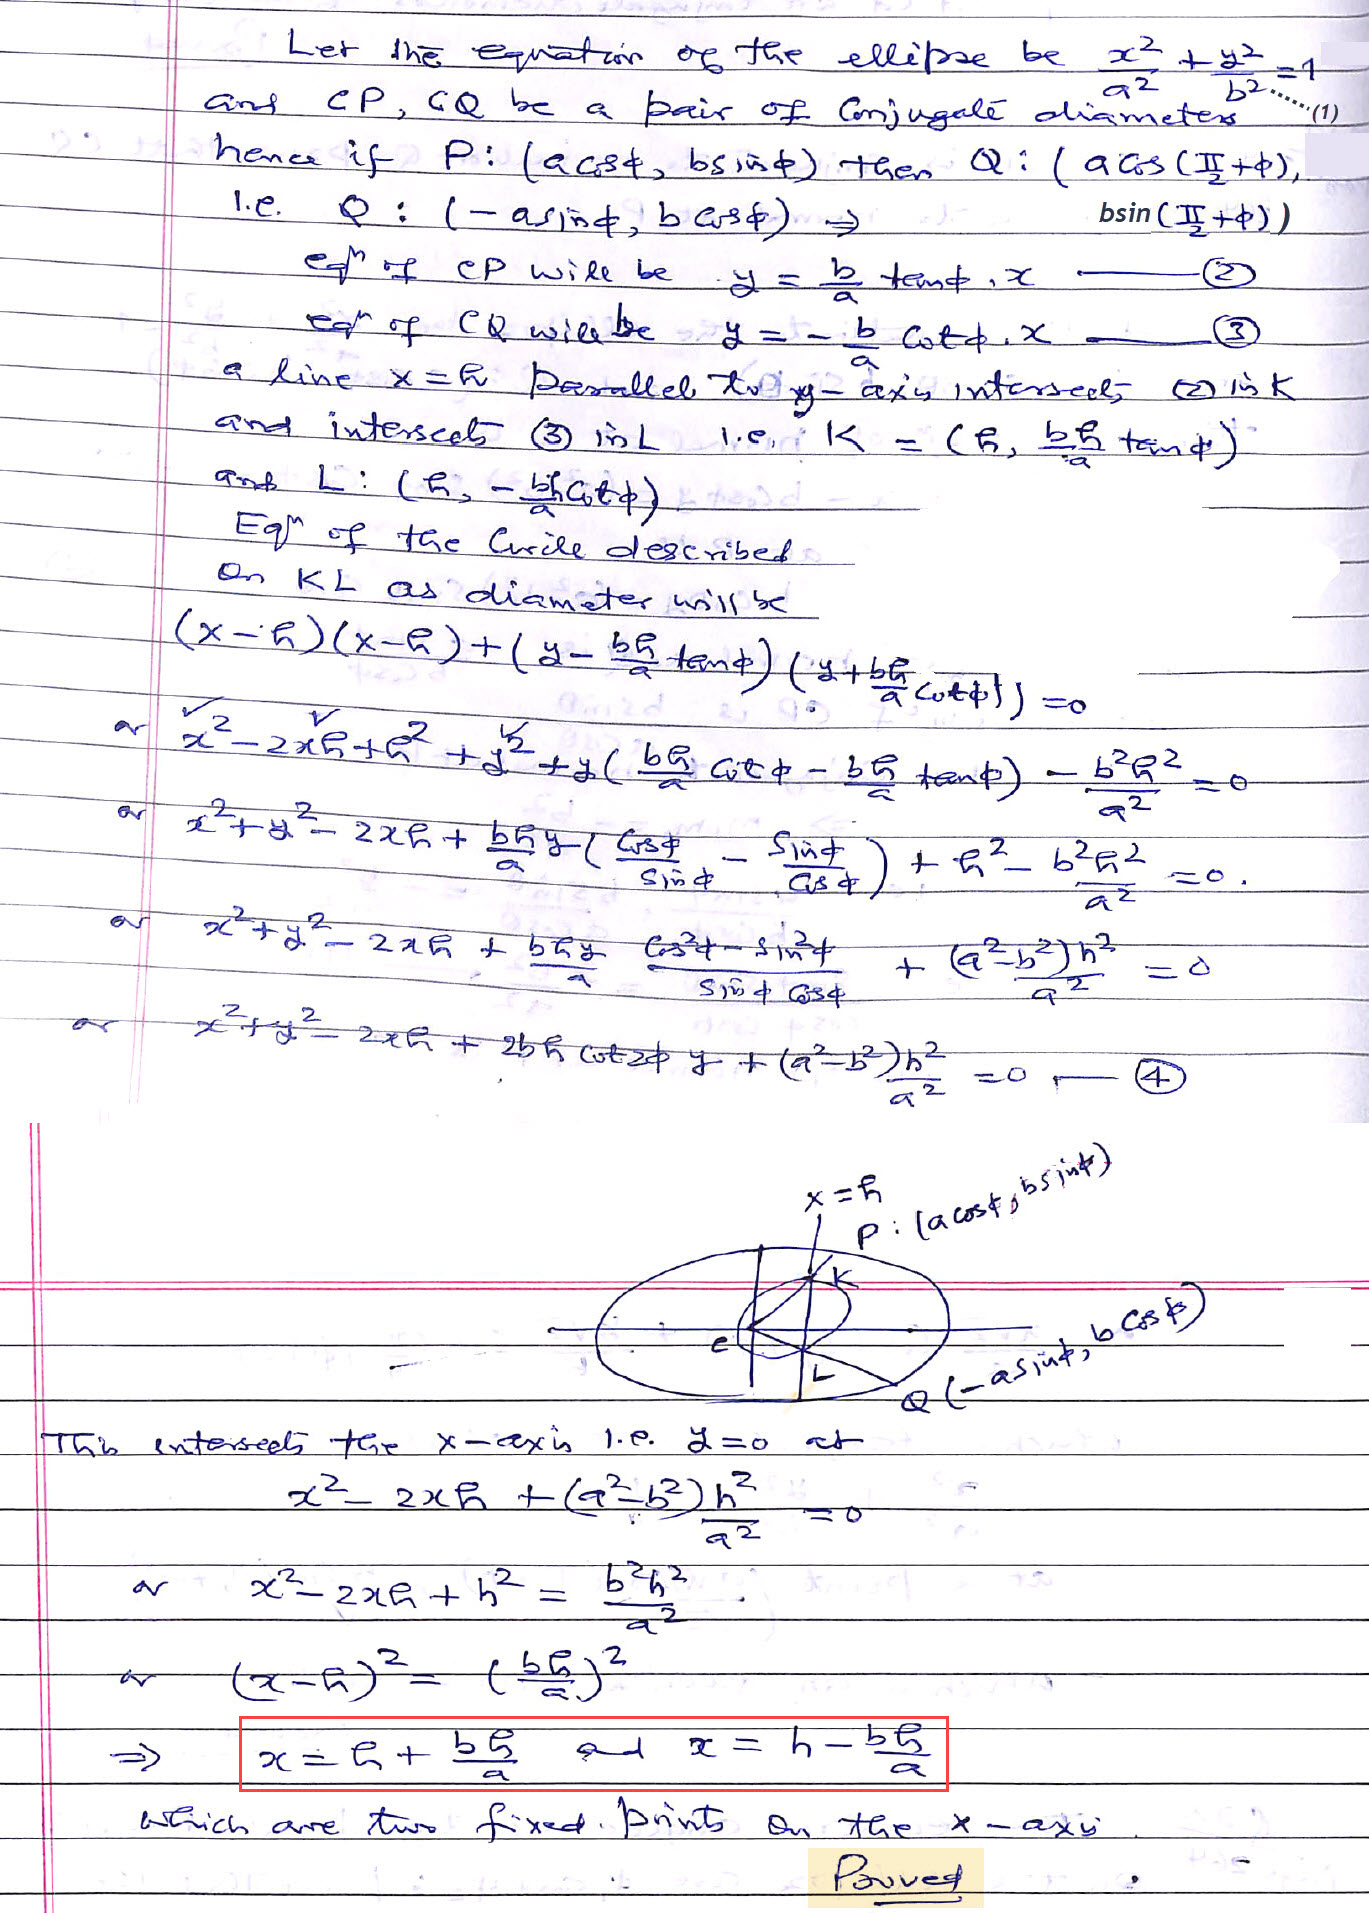 Let the equation of the ellipse be x²/a² + y²/b² = 1 ......(1)
and CP, CQ be a pair of Conjugate diameters
hence if P : (a cosϕ, b sinϕ) then Q : ( a cos (π/2 + ϕ),
bsin (π/2 + ϕ))
i.e. Q : (- a sinϕ, b cosϕ) ⇒
eqⁿ of CP will be y = b/a tanϕ . x —— (2)
eqⁿ of CQ will be y = - b/a Cotϕ . x —— (3)
a line x = h parallel to y-axis intersects (2) in K
and intersects (3) in L i.e. K = (h, bh/a tanϕ)
and L : (h, - bh/a Cotϕ)
Eqⁿ of the Circle described
on KL as diameter will be
(x-h)(x-h) + (y - bh/a tanϕ) (y + bh/a Cotϕ)) = 0
or x² - 2xh + h² + y² + y( bh/a Cotϕ - bh/a tanϕ) - b²h²/a² = 0
or x² + y² - 2xh + bh/a y ( Cosϕ/Sinϕ - Sinϕ/Cosϕ ) + h² - b²h²/a² = 0.
or x² + y² - 2xh + bhy/a Cos²ϕ - Sin²ϕ/Sinϕ Cosϕ + (a²-b²)h²/a² = 0
or x² + y² - 2xh + 2bh cot2ϕ y + (a²-b²)h²/a² = 0 —— (4)
x = h
P : (a cosϕ, b sinϕ)
K
C
L
Q (- a sinϕ, b Cosϕ)
This intersects the x-axis i.e. y = 0 at
x² - 2xh + (a²-b²)h²/a² = 0
or x² - 2xh + h² = b²h²/a² .
or (x-h)² = (bh/a)²
⇒ x = h + bh/a and x = h - bh/a
which are two fixed points on the x-axis.
Proved